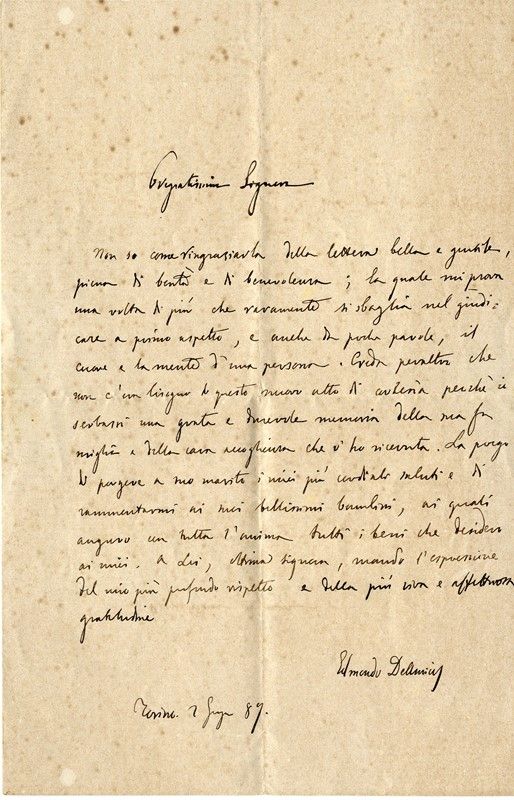 Pregiatissima Signora
Non so come ringraziarla della lettera bella e gentile,
piena di bontà e di benevolenza; la quale mi prova
una volta di più che raramente si sbaglia nel giudi-
care a primo aspetto, e anche da poche parole, il
cuore e la mente d'una persona. Creda peraltro che
non c'era bisogno di questo nuovo atto di cortesia perchè io
serbassi una grata e durevole memoria della sua fa
miglia e della cara accoglienza che vi ho ricevuta. La prego
di porgere a suo marito i miei più cordiali saluti e di
rammentarmi ai suoi bellissimi bambini, ai quali
auguro con tutta l'anima tutti i beni che desidero
ai miei. A Lei, ottima signora, mando l'espressione
del mio più profondo rispetto e della più viva e affettuosa
gratitudine
Edmondo De Amicis
Torino. 2 89.